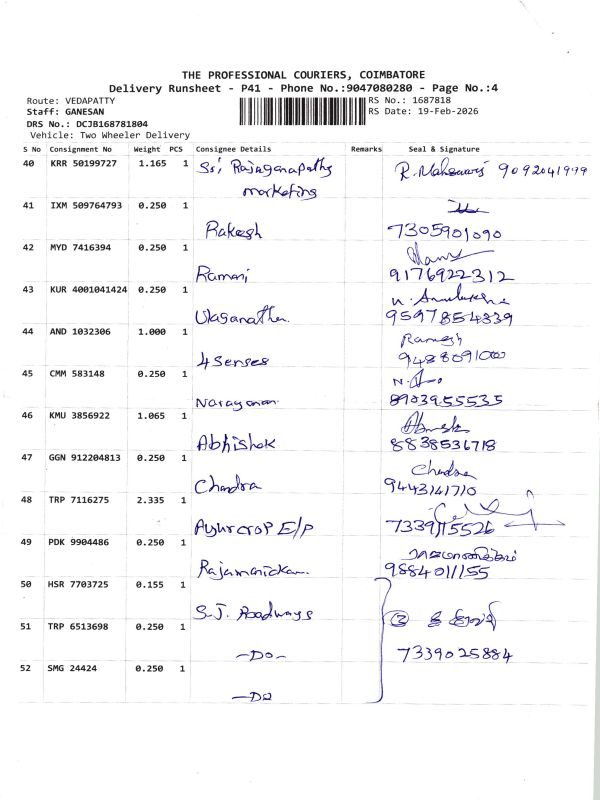 THE PROFESSIONAL COURIERS, COIMBATORE
Delivery Runsheet - P41 - Phone No.:9047080280 - Page No.:4
Route: VEDAPATTY
RS No.: 1687818
Staff: GANESAN
RS Date: 19-Feb-2026
DRS No.: DCJB168781804
Vehicle: Two Wheeler Delivery
S No Consignment No Weight PCS Consignee Details Remarks Seal & Signature
40 KRR 50199727 1.165 1 Sri Rajaganapathy R. Maheswari 9092041999
marketing
41 IXM 509764793 0.250 1
Rakesh 7305901090
42 MYD 7416394 0.250 1
Ramani 9176922312
43 KUR 4001041424 0.250 1
Ulaganathan 9597854339
44 AND 1032306 1.000 1 Ramesh
4 Senses 9488091000
45 CMM 583148 0.250 1
Narayanan 8903955535
46 KMU 3856922 1.065 1
Abhishek 8838536718
47 GGN 912204813 0.250 1 Chandra
Chandra 9443141710
48 TRP 7116275 2.335 1
Ayurcrop E/P 7339115526
49 PDK 9904486 0.250 1
Rajamanickam 9884011155
50 HSR 7703725 0.155 1
S.J. Roadways
51 TRP 6513698 0.250 1 3
-DO- 7339025884
52 SMG 24424 0.250 1
-DO